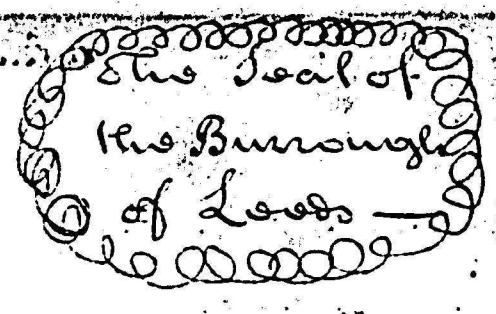 The Seal of
the Burrough
of Leeds —